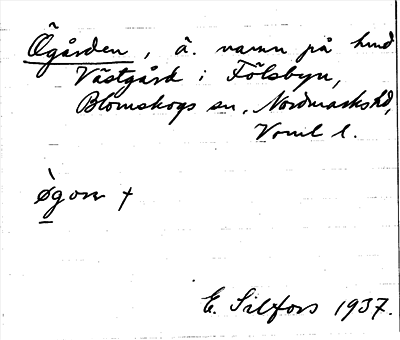 Ögården, ä. namn på hmd
Västgård i Fölsbyn,
Blomskogs sn, Nordmarks hd,
Vrml l.
ø̀gon +
E. Silfors 1937.